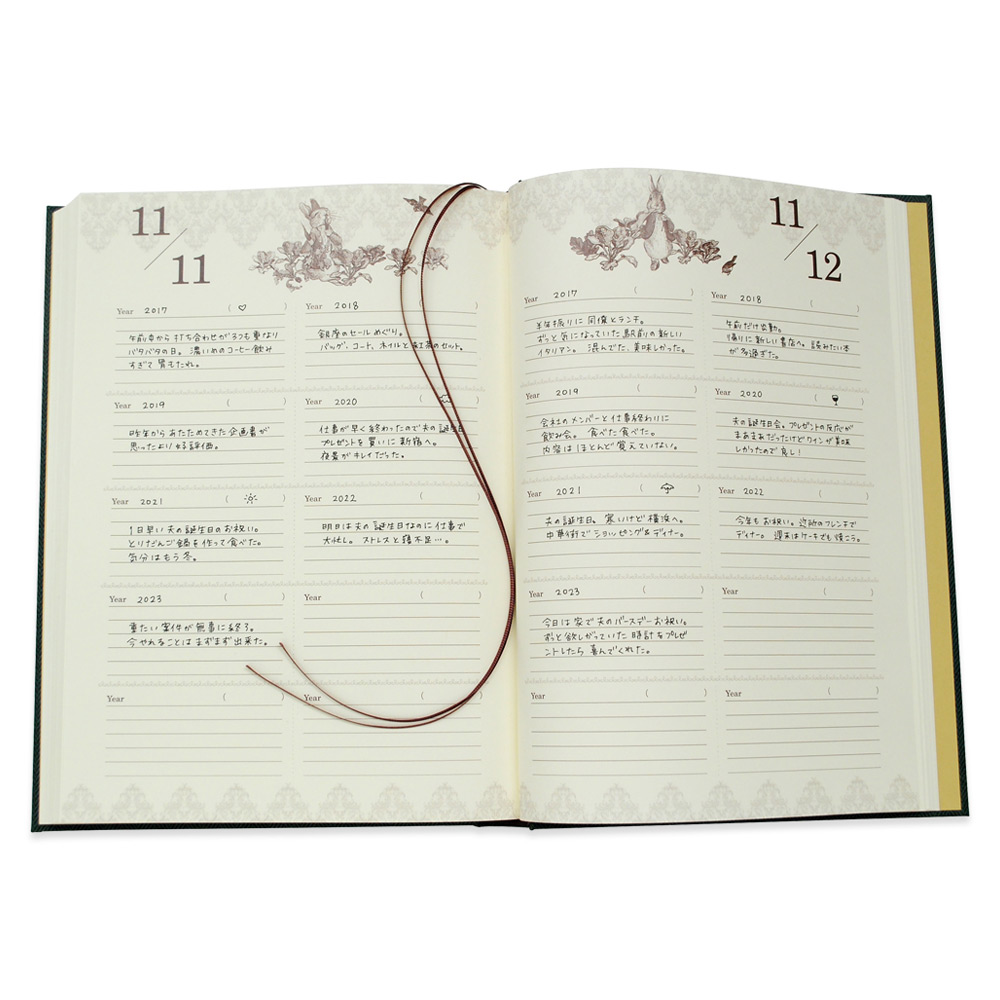 11/11
Year 2017 ( ♡ )
午前中から打ち合わせが3つも重なり
バタバタの日。濃いめのコーヒー飲み
すぎて胃もたれ。
Year 2018 ( )
銀座のセールめぐり。
バッグ、コート、ネイルと紅茶のセット。
Year 2019 ( )
昨年からあたためてきた企画書が
思ったより好評価。
Year 2020 ( )
仕事が早く終わったので夫の誕
プレゼントを買いに新宿へ。
夜景がキレイだった。
Year 2021 ( )
1日早い夫の誕生日のお祝い。
とりだんご鍋を作って食べた。
気分はもう冬。
Year 2022 ( )
明日は夫の誕生日なのに仕事で
大忙し。ストレスと寝不足…。
Year 2023 ( )
重たい案件が無事に終了。
今やれることはまずまず出来た。
Year ( )
Year ( )
Year ( )
11/12
Year 2017 ( )
半年振りに同僚とランチ。
ずっと気になっていた駅前の新しい
イタリアン。混んでた、美味しかった。
Year 2018 ( )
午前だけ出勤。
帰りに新しい書店へ。読みたい本
が多過ぎた。
Year 2019 ( )
会社のメンバーと仕事終わりに
飲み会。食べた食べた。
内容はほとんど覚えていない。
Year 2020 ( )
夫の誕生日会。プレゼントの反応が
まあまあだったけどワインが美味
しかったので良し!
Year 2021 ( )
夫の誕生日。寒いけど横浜へ。
中華街でショッピング&ディナー。
Year 2022 ( )
今年もお祝い。近所のフレンチで
ディナー。週末はケーキでも焼こう。
Year 2023 ( )
今日は家で夫のバースデーお祝い。
ずっと欲しがっていた時計をプレゼ
ントしたら喜んでくれた。
Year ( )
Year ( )
Year ( )